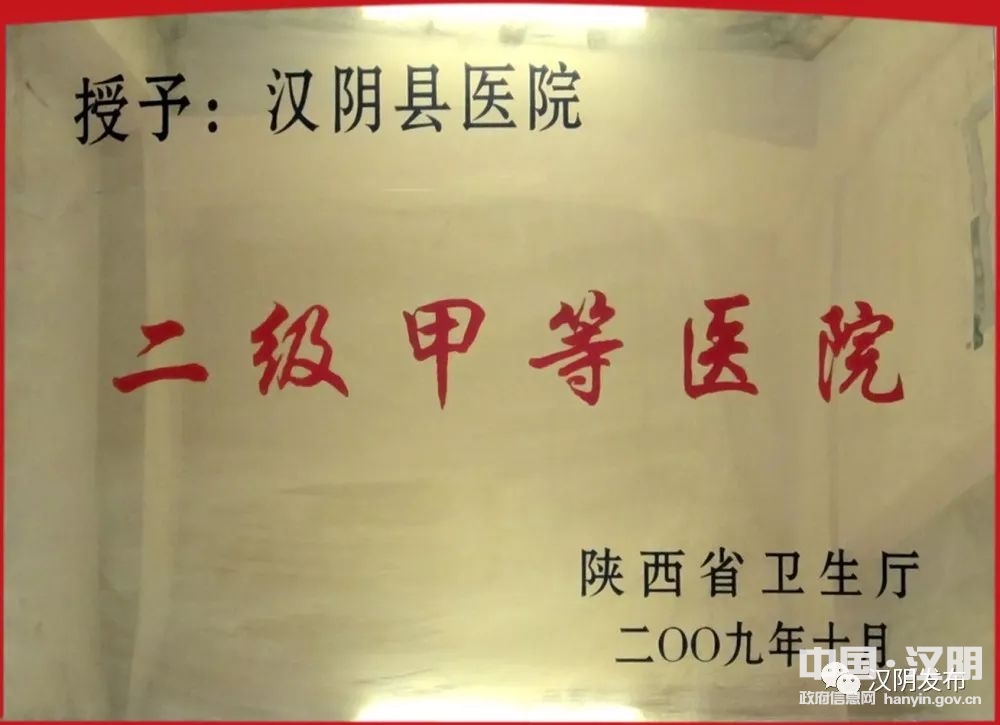 授予：汉阴县医院
二级甲等医院
陕西省卫生厅
二〇〇九年十月
中国·汉阴
汉阴发布
政府信息网 hanyin.gov.cn